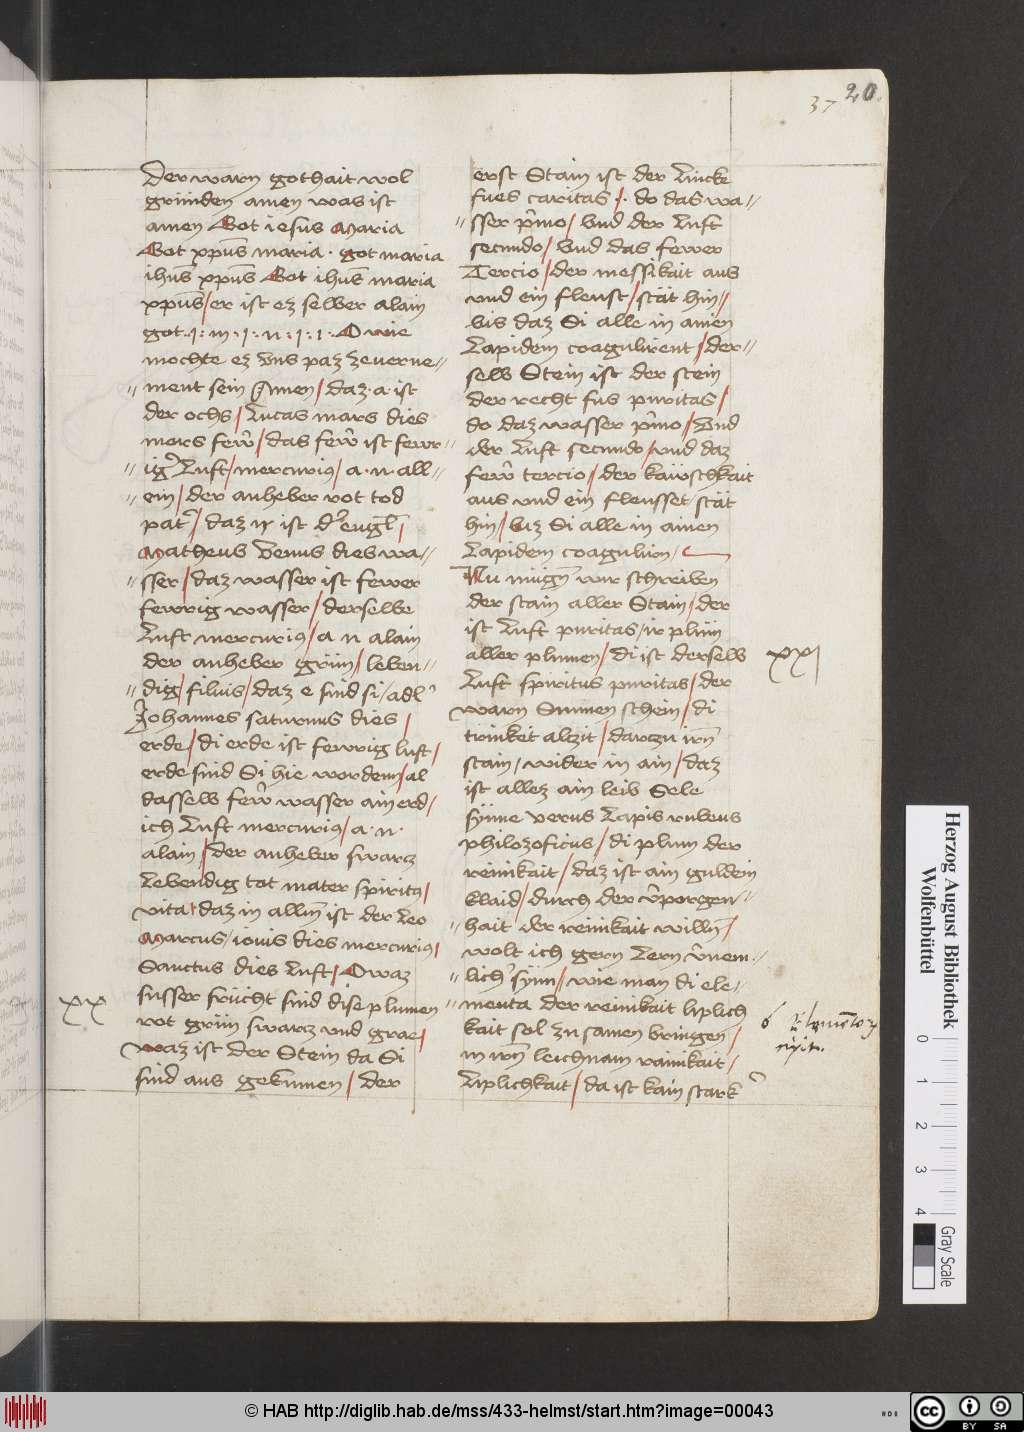 37 20.
Der warn gothait wol
gründen amen was ist
amen Got iesus Maria
Got xpūs maria · got maria
ihūs xpūs Got ihūs maria
xpūs / er ist ez selber alain
got · j : m · j : n : j : j : O wie
mochte ez vns paz zeuerne=
ment sein Amen / daz · a · ist
der ochs / Lucas mars dies
mars fewr̄ / das fewr̄ ist fewr=
ig̉ Luft / mercuriꝰ / a · n · all=
ein / der anheber rot tod
pat̉ / daz ir ist d̉ eugl̄ /
Matheus Venus dies wa=
sser / daz wasser ist fewer
fewrig wasser / derselbe
Luft mercuriꝰ / a n alain
der anheber grün / leben=
dig / filius / daz e sind si / adl̉
Johannes saturnus dies /
erde / di erde ist fewrig luft /
erde sind Si hie wordenn / al
dasselb fewr̄ wasser ain erd /
ich Luft mercuriꝰ / a · n ·
alain / der anheber swarz
Lebendig tot mater spiritꝰ /
vita / daz in allm̄ ist der Leo
Marcus / iouis dies mercuriꝰ /
Sanctus dies Luft / O waz
susser frücht sind dise plumen
rot grün swarz vnd grae /
waz ist der Stein da Si
sind aus gekumen / der
xx
erst Stain ist der Lincke
fues caritas / · do das wa=
sser p̄mo / vnd der Luft
secundo / vnd das fewer
Tercio / der messikait aus
vnd ein fleust / stät hin /
bis daz Si alle in ainen
Lapidem coagulirent / der=
selb Stein ist der stein
der recht fus puritas /
do daz wasser p̄mo / Vnd
der Luft secundo / vnd daz
fewr̄ tercio / der kawschkait
aus vnd ein fleusset / stät
hin / biz Si alle in ainen
Lapidem coagulirn /
Nu mügn̄ wir schreiben
der stain aller Stain / der
ist Luft puritas / ir plüm
aller plumen / di ist derselb
Luft spiritus puritas / der
warn Sunnen schein / di
trinket alzit / darczu irn̄
stain / wider in ain / daz
ist allez ain leib Sele
synne verus Lapis rubeus
philozoficus / di plum der
reinikait / daz ist ain guldein
klaid / durch der v̄porgen=
hait der reinikait willn̄ /
wolt ich gern Lern v̄nem=
lich̉ synn / wie man di ele=
menta der reinikait liplich
kait sol zu samen bringen /
in irn̄ leichnam rainikait /
Liplichkait / da ist kain stark̉
xxj
Herzog August Bibliothek
Wolfenbüttel
0 1 2 3 4
Gray Scale
© HAB http://diglib.hab.de/mss/433-helmst/start.htm?image=00043
cc BY SA